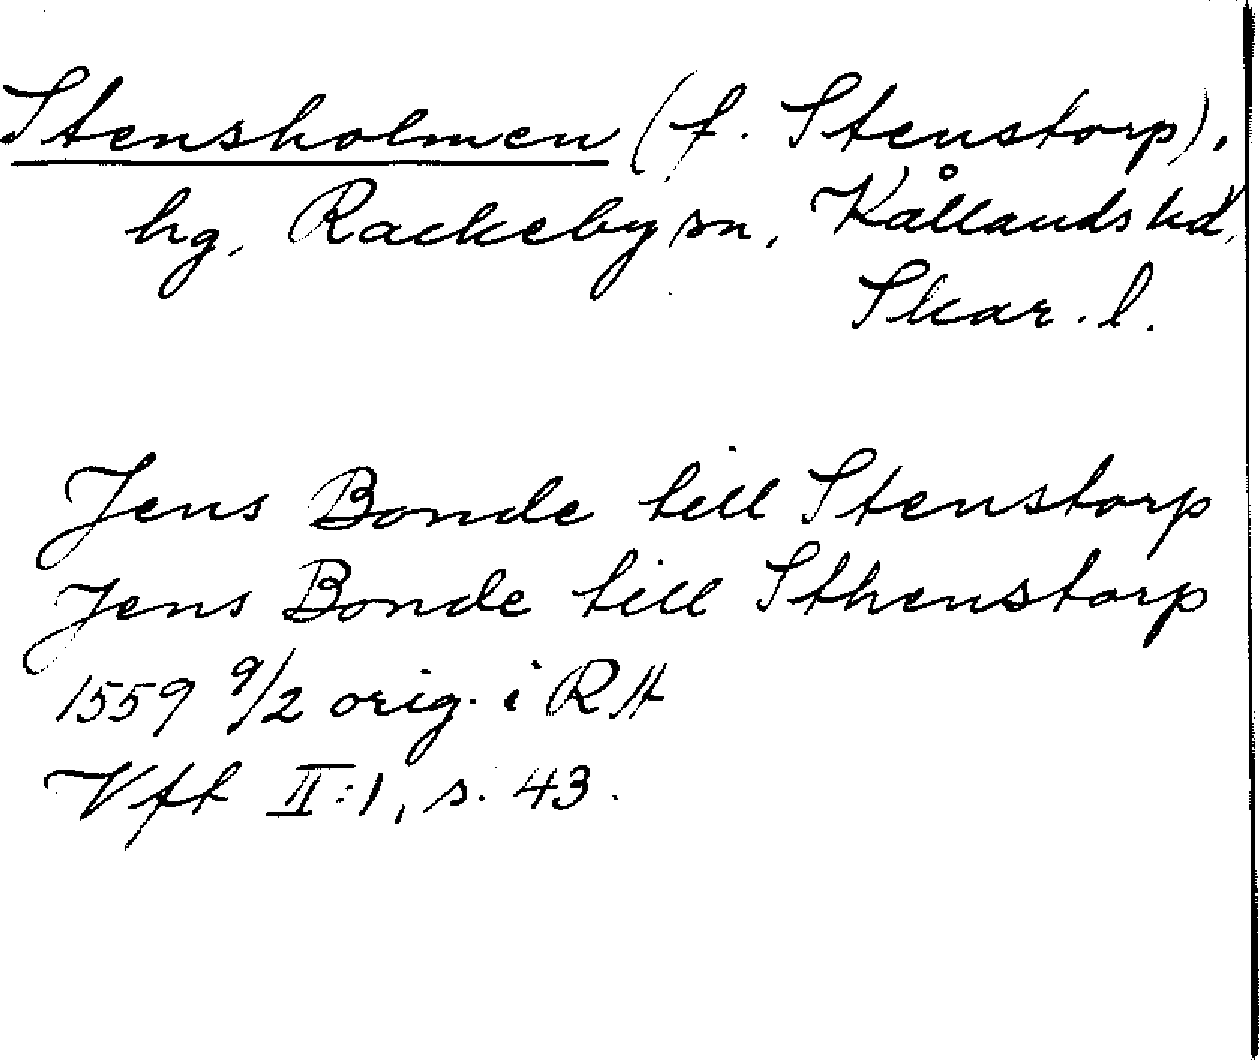 Stensholmen (f. Stenstorp),
hg, Rackeby sn, Kållands hd,
Skar. l.
Jens Bonde till Stenstorp
Jens Bonde till Sthenstorp
1559 9/2 orig. i RA
Vft II:1, s. 43.